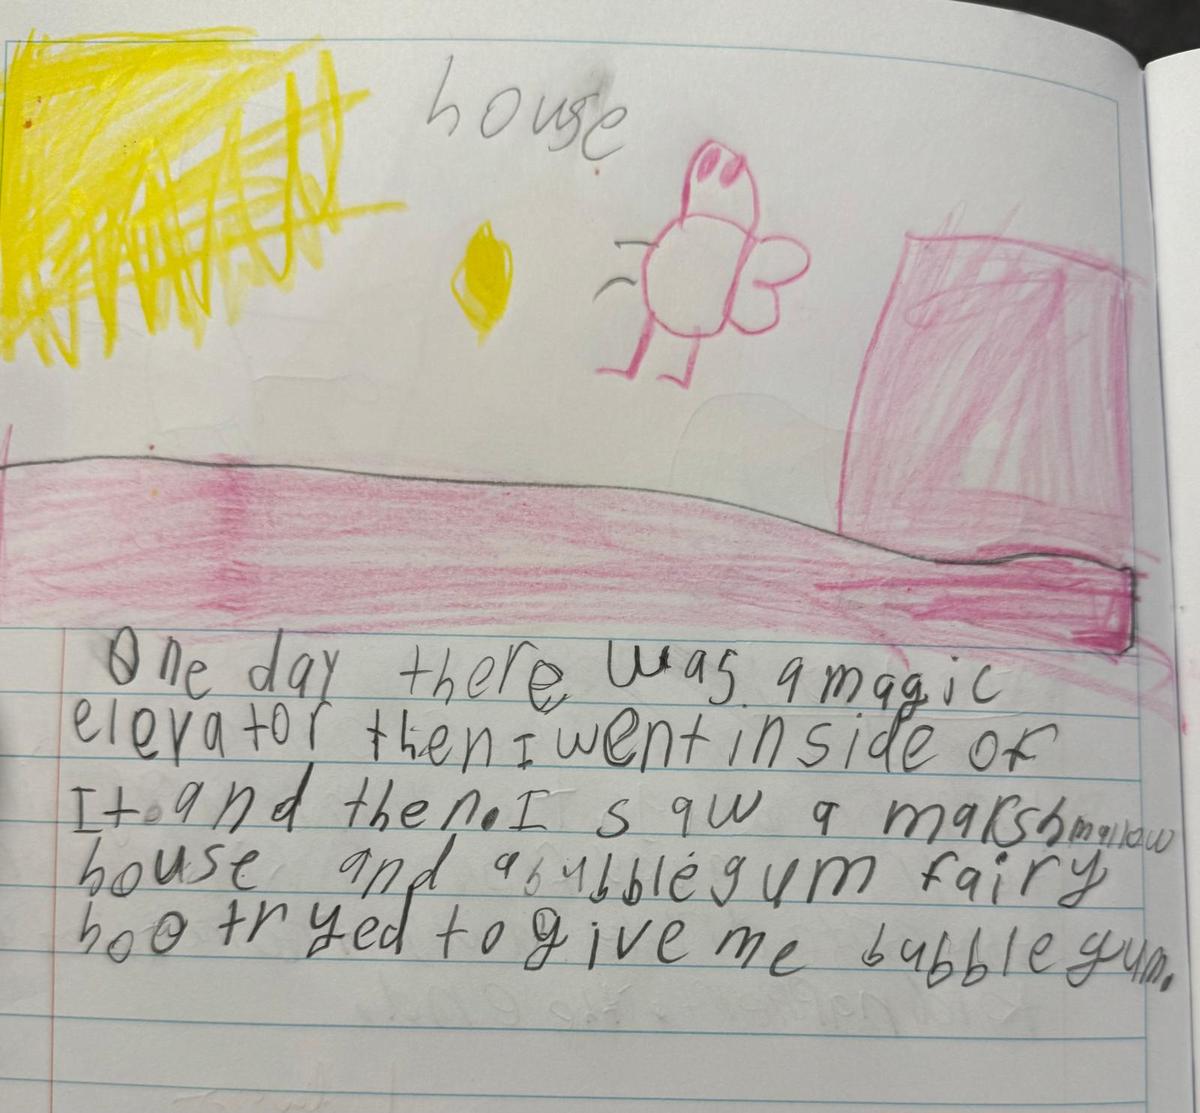 house
One day there was a magic
elevator then I went inside of
It. and then. I saw a marshmallow
house and a bubblegum fairy
hoo tryed to give me bubble gum.